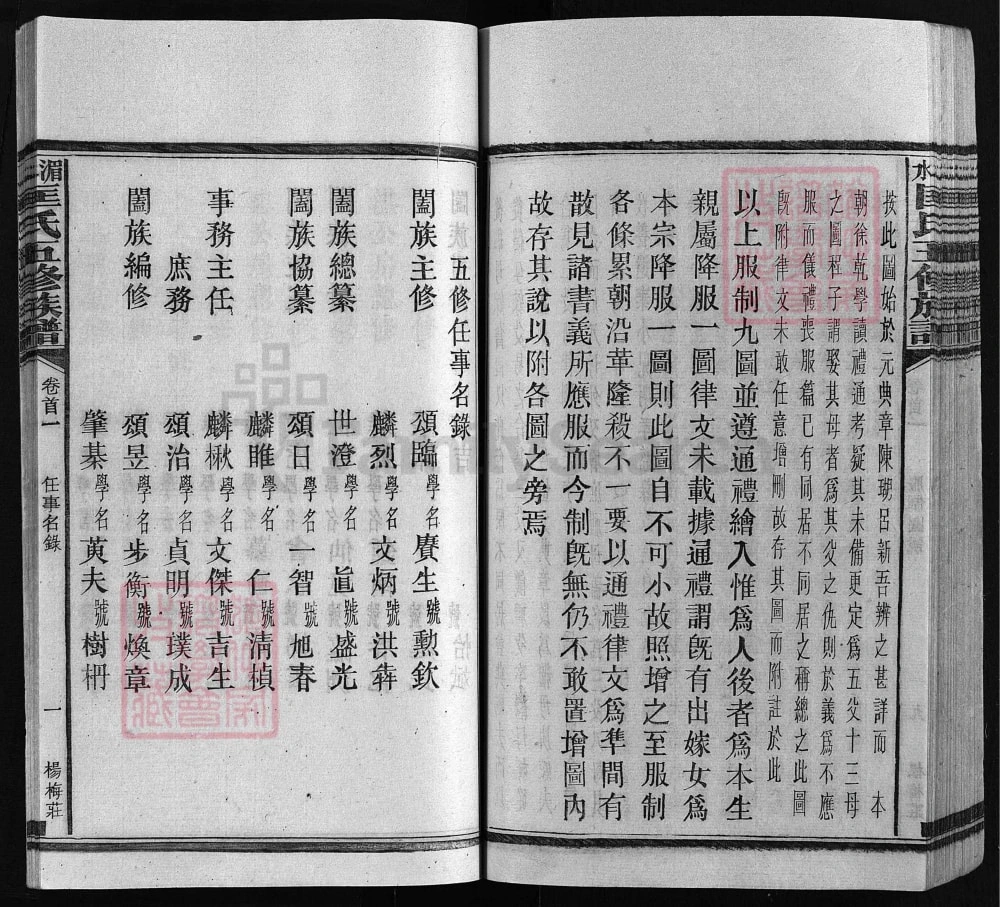 按此圖始於元典章陳瑚呂新吾辨之甚詳而　本
朝徐乾學讀禮通考疑其未備更定為五父十三母
之圖程子謂娶其母者為其父之仇則於義為不應
服而儀禮喪服篇已有同居不同居之稱總之此圖
既附律文未敢任意增刪故存其圖而附註於此
以上服制九圖並遵通禮繪入惟為人後者為本生
親屬降服一圖律文未載據通禮謂既有出嫁女為
本宗降服一圖則此圖自不可小故照增之至服制
各條累朝沿革隆殺不一要以通禮律文為準間有
散見諸書義所應服而今制既無仍不敢置增圖內
故存其說以附各圖之旁焉
五修任事名錄
闔族主修　頌臨學名賡生號勳欽
麟烈學名文炳號洪犇
闔族總纂　世澄學名仙　眞號盛光
闔族協纂　頌日學名　一智號旭春
麟睢學名　仁號淸楨
事務主任　麟楸學名文傑號吉生
庶務　頌治學名貞明號璞成
闔族編修　頌昱學名步衡號煥章
肇綦學名萸夫號樹柵
湄水匡氏五修族譜
卷首一
任事名錄
一
楊梅莊